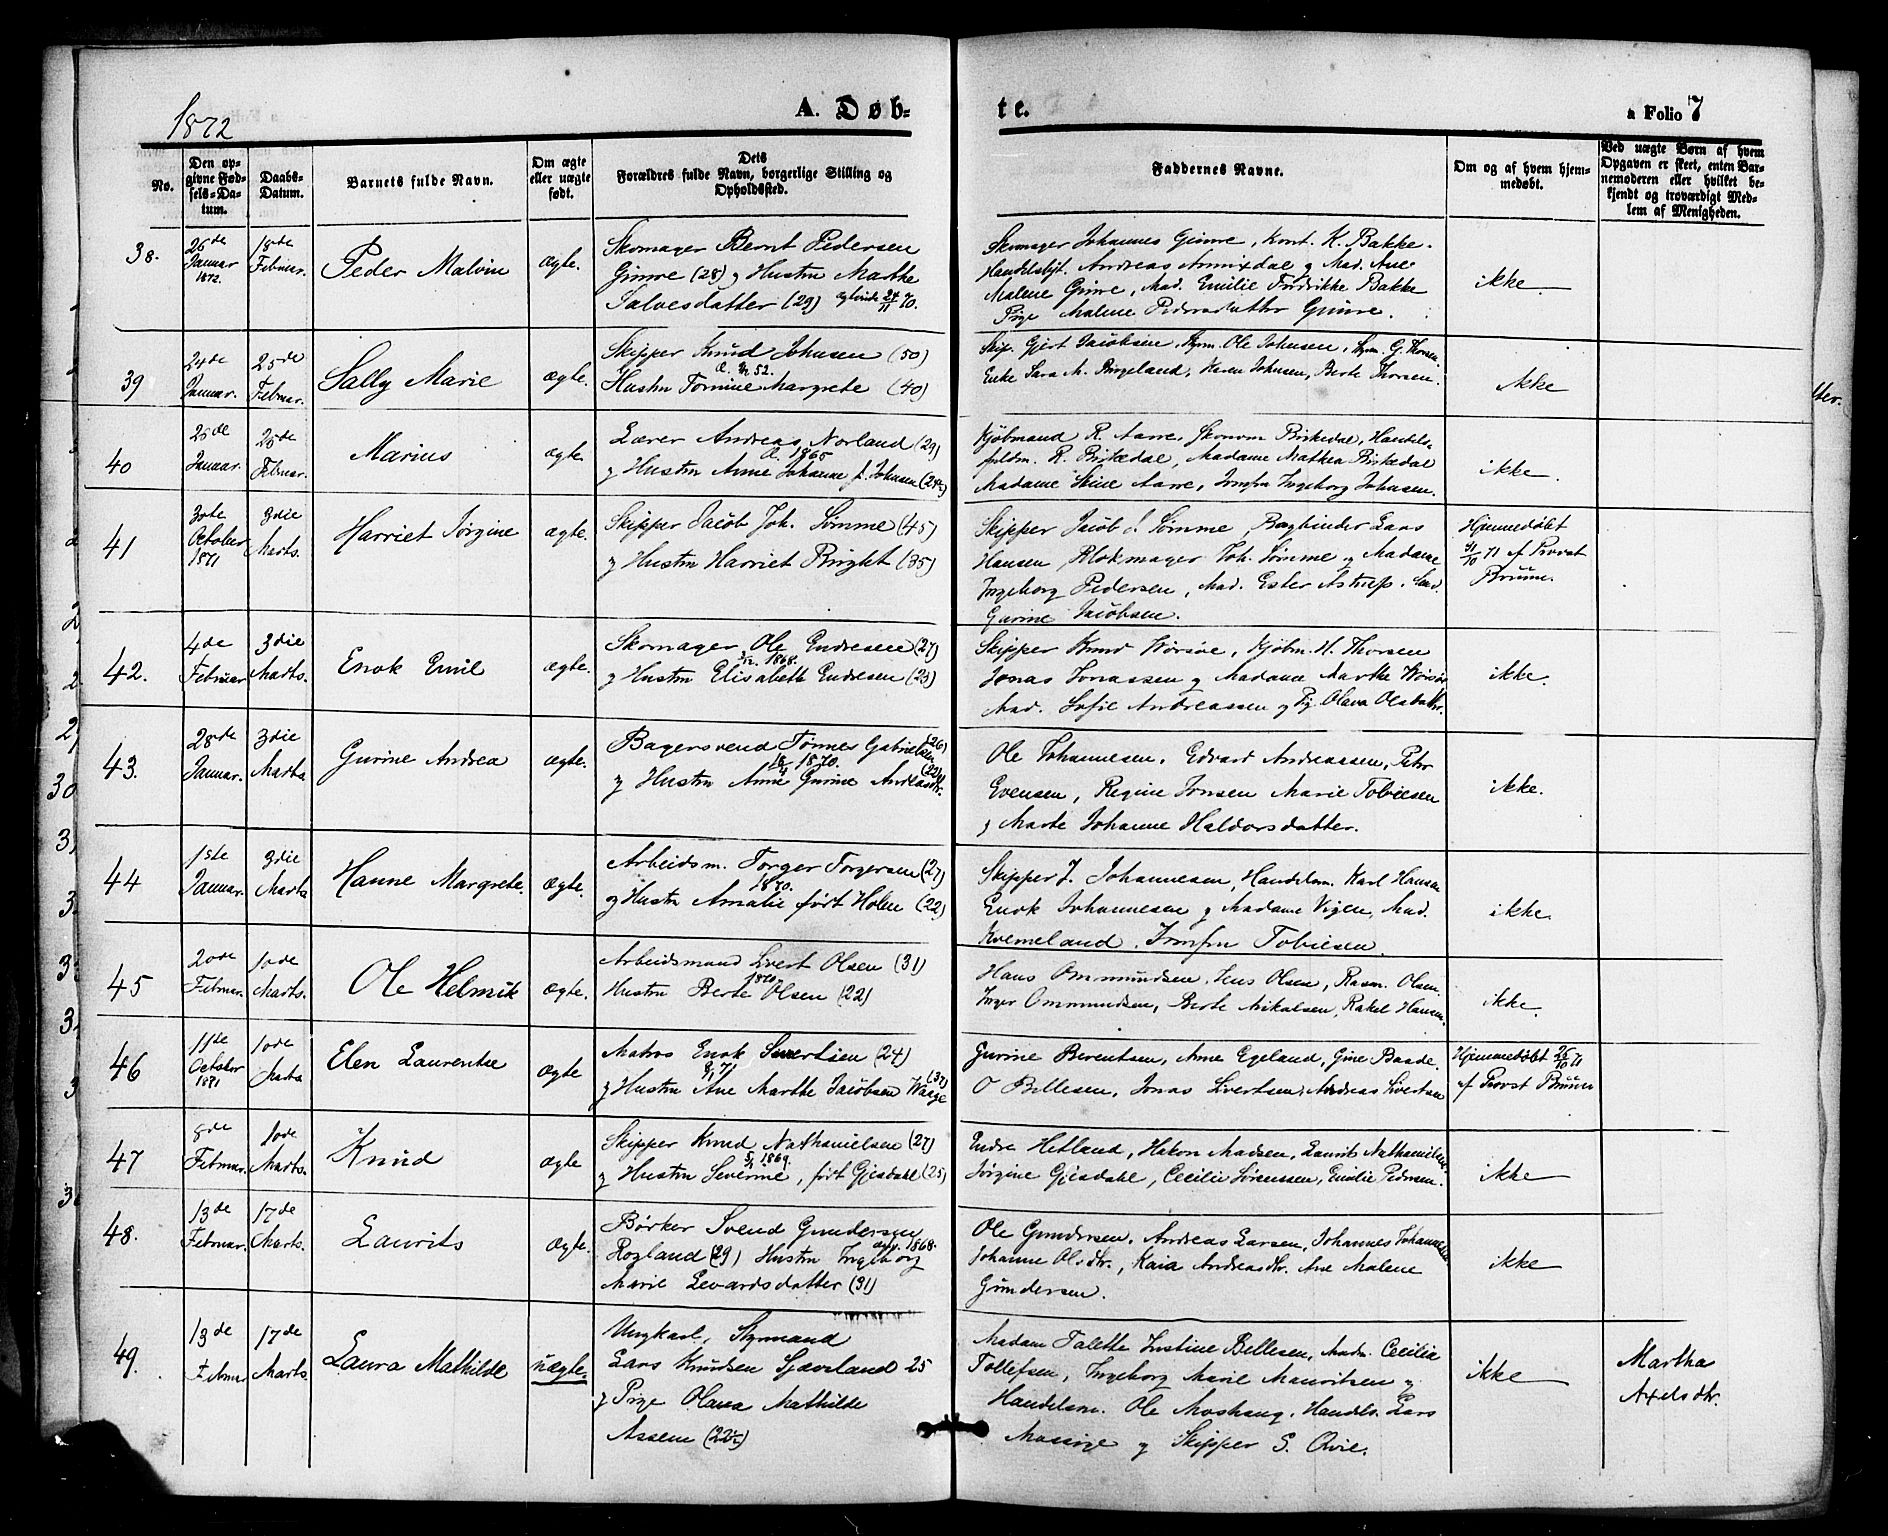 1872
A. Døbte.
a Folio 7
No.
Den opgivne Fødsels-Datum.
Daabs-Datum.
Barnets fulde Navn.
Om ægte eller uægte født.
Dets Forældres fulde Navn, borgerlige Stilling og Opholdssted.
Faddernes Navne.
Om og af hvem hjemmedøbt.
Ved uægte Børn af hvem Opgaven er skeet, enten Barnemoderen eller hvilket bekjendt og troværdigt Medlem af Menigheden.
38.
26de Januar 1872.
18de Februar.
Peder Malvin
ægte.
Skomager Bernt Pedersen
Gimre (28) og Hustru Marthe
Salvesdatter (29) 24/11 70.
Skomager Johannes Gimre, Kont. K. Bakke.
Handelsbjt. Andreas og Mad. Ane
Malene Gimre, Mad. Emilie Fredrikke Bakke
Pige Malene Pedersdatter Gimre.
ikke
39
24de Januar.
25de Februar.
Sally Marie
ægte.
Skipper Knud Johnsen (50)
52.
Hustru Tomine Margrete (40)
Skip. Gjert Jacobsen, Ole Johnsen, G. Thorsen
Enke Sara M. Ringeland, Karen Johnsen, Berte Thorsen.
ikke
40
25de Januar.
25de Februar.
Marius
ægte.
Lærer Andreas Norland (29)
1865
og Hustru Anne Johanne f. Johnsen (24½)
Kjøbmand R. Aarre, Birkedal, Handels-
fuldm. R. Birkedal, Madame Mathea Birkedal
Madame Stine Aarre, Jomfru Ingeborg Johnsen.
ikke
41
30te October 1871
3die Marts.
Harriet Jørgine
ægte.
Skipper Jacob Joh. Sømme (45)
og Hustru Harriet Bright (35)
Skipper Jacob J Sømme, Bogbinder Lars
Hansen Blokmager Joh. Sømme og Madame
Ingeborg Pedersen, Mad. Ester Astrup. Mad.
Gurine Jacobsen.
Hjemmedøbt
31/10 71 af Provst
Bruun.
42.
4de Februar
3die Marts.
Enok Emil
ægte.
Skomager Ole Endresen (27)
1868.
og Hustru Elisabeth Endresen (23)
Skipper Knud Körsöe, Kjøbm. H. Thorsen
Jonas Jonassen og Madame Marthe
Mad. Sofie Andreassen og Pg. Olava Olsdatter.
ikke.
43.
28de Januar.
3die Marts
Gurine Andrea
ægte.
Bagersvend Tønnes Gabrielsen (26)
1870.
og Hustru Anne Gurine Andreasdtr. (22)
Ole Johannesen, Edvard Andreassen, Peter
Evensen, Regine Jonsen Marie Tobiesen
og Marte Johanne Haldorsdatter.
ikke.
44
1ste Januar.
3die Marts
Hanne Margrete.
ægte.
Arbeidsm. Torger Torgersen (27)
1870.
og Hustru Amalie født Holm (22)
Skipper J. Johannesen, Handelsm. Karl Hansen
Enok Johannesen og Madame Vigen, Mad.
Kverneland. Jomfru Tobiesen.
ikke.
45
20de Februar.
10de Marts.
Ole Helmik
ægte.
Arbeidsmand Sivert Olsen (31)
1870.
Hustru Berte Olsen (22)
Hans Ommundsen, Jens Olsen, Rasm. Olsen.
Inger Ommundsen, Berte Mikalsen, Rakel Hansen.
ikke.
46
11te October 1871
10de Marts
Elen Laurentse
ægte
Matros Enok Sivertsen (24)
71
og Hustru Ane Marthe Jacobsen Waage (37)
Gurine Berentsen, Anne Egeland, Gine Baade.
O Bellesen, Jonas Sivertsen, Andreas Sivertsen
Hjemmedøbt 26/10 71
af Provst Bruun
47
8de Februar.
10de Marts.
Knud
ægte
Skipper Knud Nathanielsen (27)
1869.
og Hustru Severine, født Gjesdahl (25)
Endre Hetland, Hakon Madsen, Laurits Nathanielsen.
Jørgine Gjesdahl, Cecilie Sørenssen, Emilie Pedersen.
ikke
48.
13de Februar.
17de Marts.
Laurits
ægte.
Børker Svend Gundersen
1868.
Rogland (29) Hustru Ingeborg
Marie Sevardsdatter (31)
Ole Gundersen. Andreas Larsen, Johannes Johannesen
Johanne Olsdtr., Kaia Andreasdtr. Ane Malene
Gundersen.
ikke
49.
13de Februar
17de Marts.
Laura Mathilde
uægte.
Ungkarl, Styrmand
Lars Knudsen Sjøvoland 25
og Pige Olava Mathilde
Assen (22½)
Madam Talette Justine Bellesen, Madm. Cecilia
Tollefsen, Ingeborg Marie Mauritsen og
Handelsm. Ole Moshaug. Handels. Lars
og Skipper S. Qvie.
ikke
Martha
Axelsdtr.